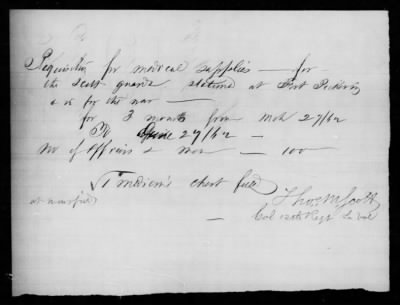 Requisition for medical supplies — for
the Scott guards stationed at Fort Pickering
& is for the war —
for 3 months from Mch 27/62
To June 27/62 —
No of Officers & Men — 100
1 medicine chest full
Thos M Scott
Col 12th Regt La Vol